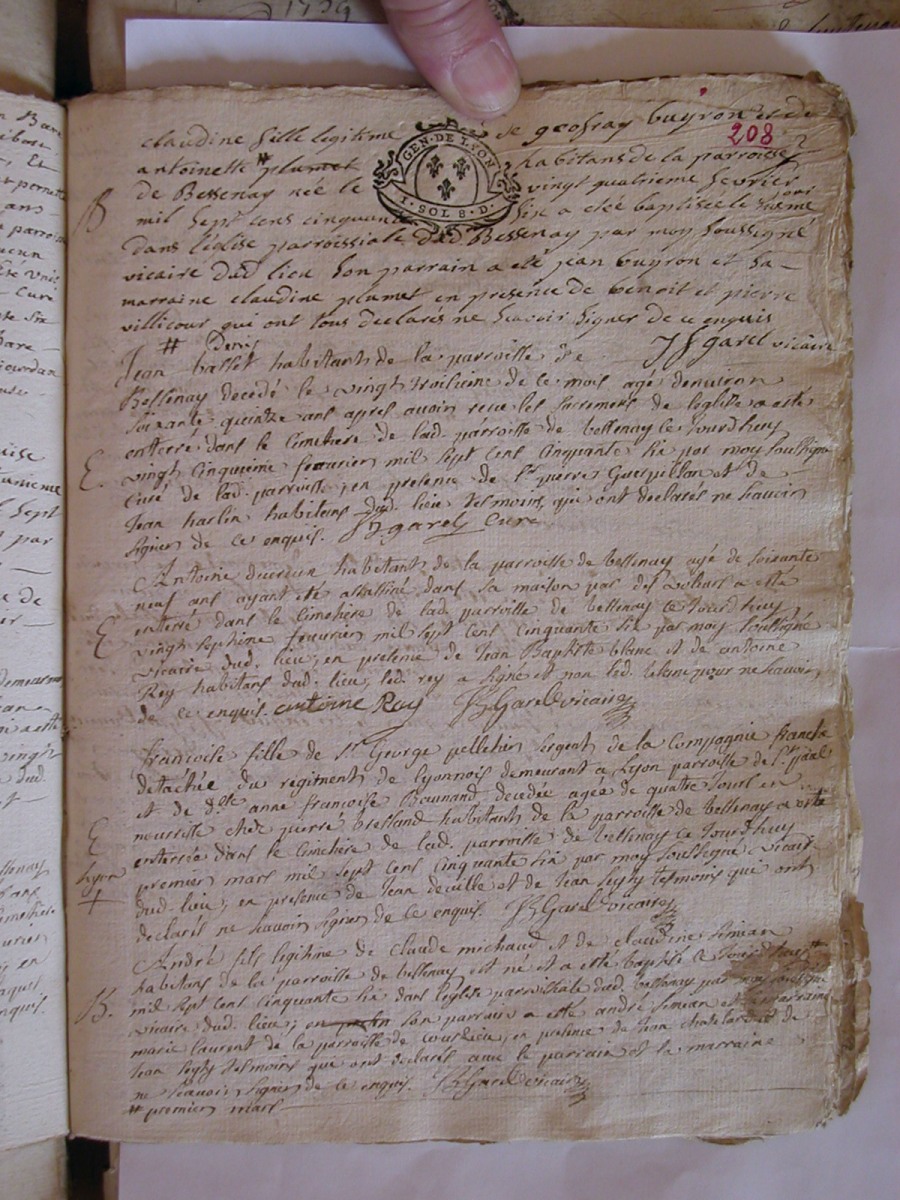 208
claudine fille legitime de geofray buyron et de
antoinette # plumet habitans de la parroisse
GEN·DE LYON
1·SOL 8·D·
de Bessenay née le vingt quatrieme fevrier
B mil sept cens cinquante six a eté baptisée le meme jour
dans l'église parroissiale dud Bessenay par moy soussigné
vicaire dud lieu son parrain a eté jean buyron et sa
marraine claudine plumet en presence de benoit et pierre
villicour qui ont tous declarés ne scavoir signer de ce enquis
# Denis JSgarel vicaire
Jean ballet habitant de la parroisse de
Bessenay decedé le vingt troisieme de ce mois agé denviron
soixante quinze ans apres avoir receu les sacremens de leglise a esté
enterré dans le cimetiere de lad. parroisse de bessenay ce jourdhuy
E. vingt cinquieme feurier mil sept cent cinquante six par moy soussigné
Curé de lad. parroisse, en presence de Sr pierre Guerpillon et de
Jean harlin habitens dud. lieu tesmoins, qui ont declarés ne scauoir
signer de ce enquis. garel Curé
Antoine ducreux habitant de la parroisse de bessenay agé de soixante
neuf ans ayant été assassiné dans sa maison par des a esté
E enterré dans le cimetiere de lad. parroisse de bessenay ce jourdhuy
vingt septieme feurier mil sept cent cinquante six par moy soussigné
vicaire dud. lieu; en presence de Jean Baptiste blanc et de antoine
Rey habitans dud. lieu, led. rey a signé et non led. blanc pour ne scauoir
de ce enquis. antoine Rey JSGarel vicaire
francoise fille de Sr George pelletier sergent de la Compagnie franche
detachée du regiment de lyonnois demeurant a Lyon parroisse de St. paul
et de dlle anne francoise Bounand decedée agée de quatre jours en
E nourrisse chez pierre habitant de la parroisse de bessenay a esté
Lyon enterrée dans le cimetiere de lad. parroisse de bessenay ce jourdhuy
+ premier mars mil sept cent cinquante six par moy soussigné vicaire
dud. lieu; en presence de Jean deville et de Jean tesmoins qui ont
declarés ne scauoir signer de ce enquis. JSGarel vicaire
André fils legitime de claude michaud et de claudine simian
habitans de la parroisse de bessenay est né et a esté baptisé a jourdhuy #
B. mil sept cent cinquante six dans l'église parroissiale dud. bessenay par moy soussigné
vicaire dud. lieu; son parrain a esté andré simian et sa marraine
marie laurent de la parroisse de courzieu, en presence de Jean chatelard et de
Jean tesmoins qui ont declarés avec le parrain et la marraine
ne scauoir signer de ce enquis. JSGarel vicaire
# premier mars